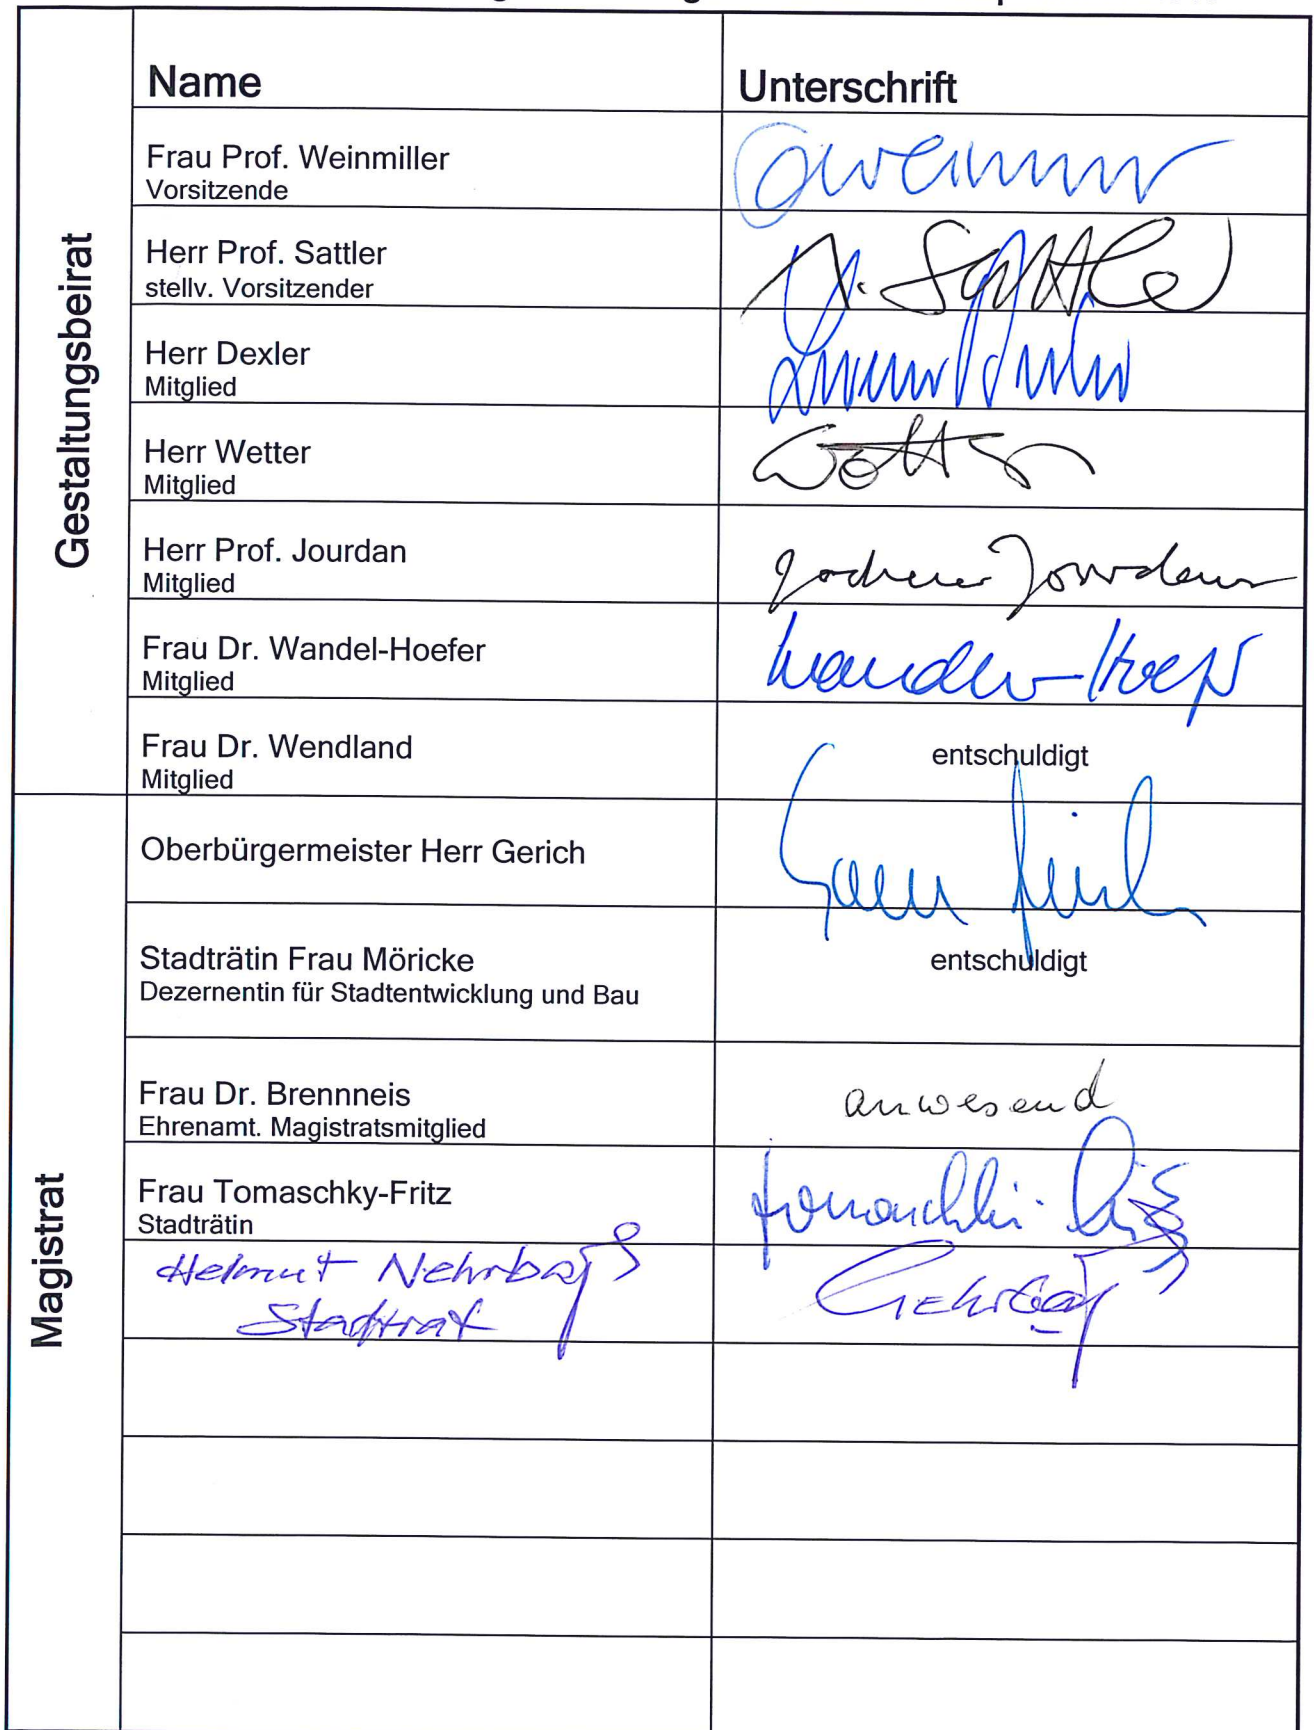 Name Unterschrift
Gestaltungsbeirat
Frau Prof. Weinmiller
Vorsitzende
Herr Prof. Sattler
stellv. Vorsitzender
Herr Dexler
Mitglied
Herr Wetter
Mitglied
Herr Prof. Jourdan
Mitglied
Jochem Jourdan
Frau Dr. Wandel-Hoefer
Mitglied
Wandel-Hoefer
Frau Dr. Wendland
Mitglied
entschuldigt
Magistrat
Oberbürgermeister Herr Gerich
Stadträtin Frau Möricke
Dezernentin für Stadtentwicklung und Bau
entschuldigt
Frau Dr. Brennneis
Ehrenamt. Magistratsmitglied
anwesend
Frau Tomaschky-Fritz
Stadträtin
Helmut Nehrbaß
Stadtrat